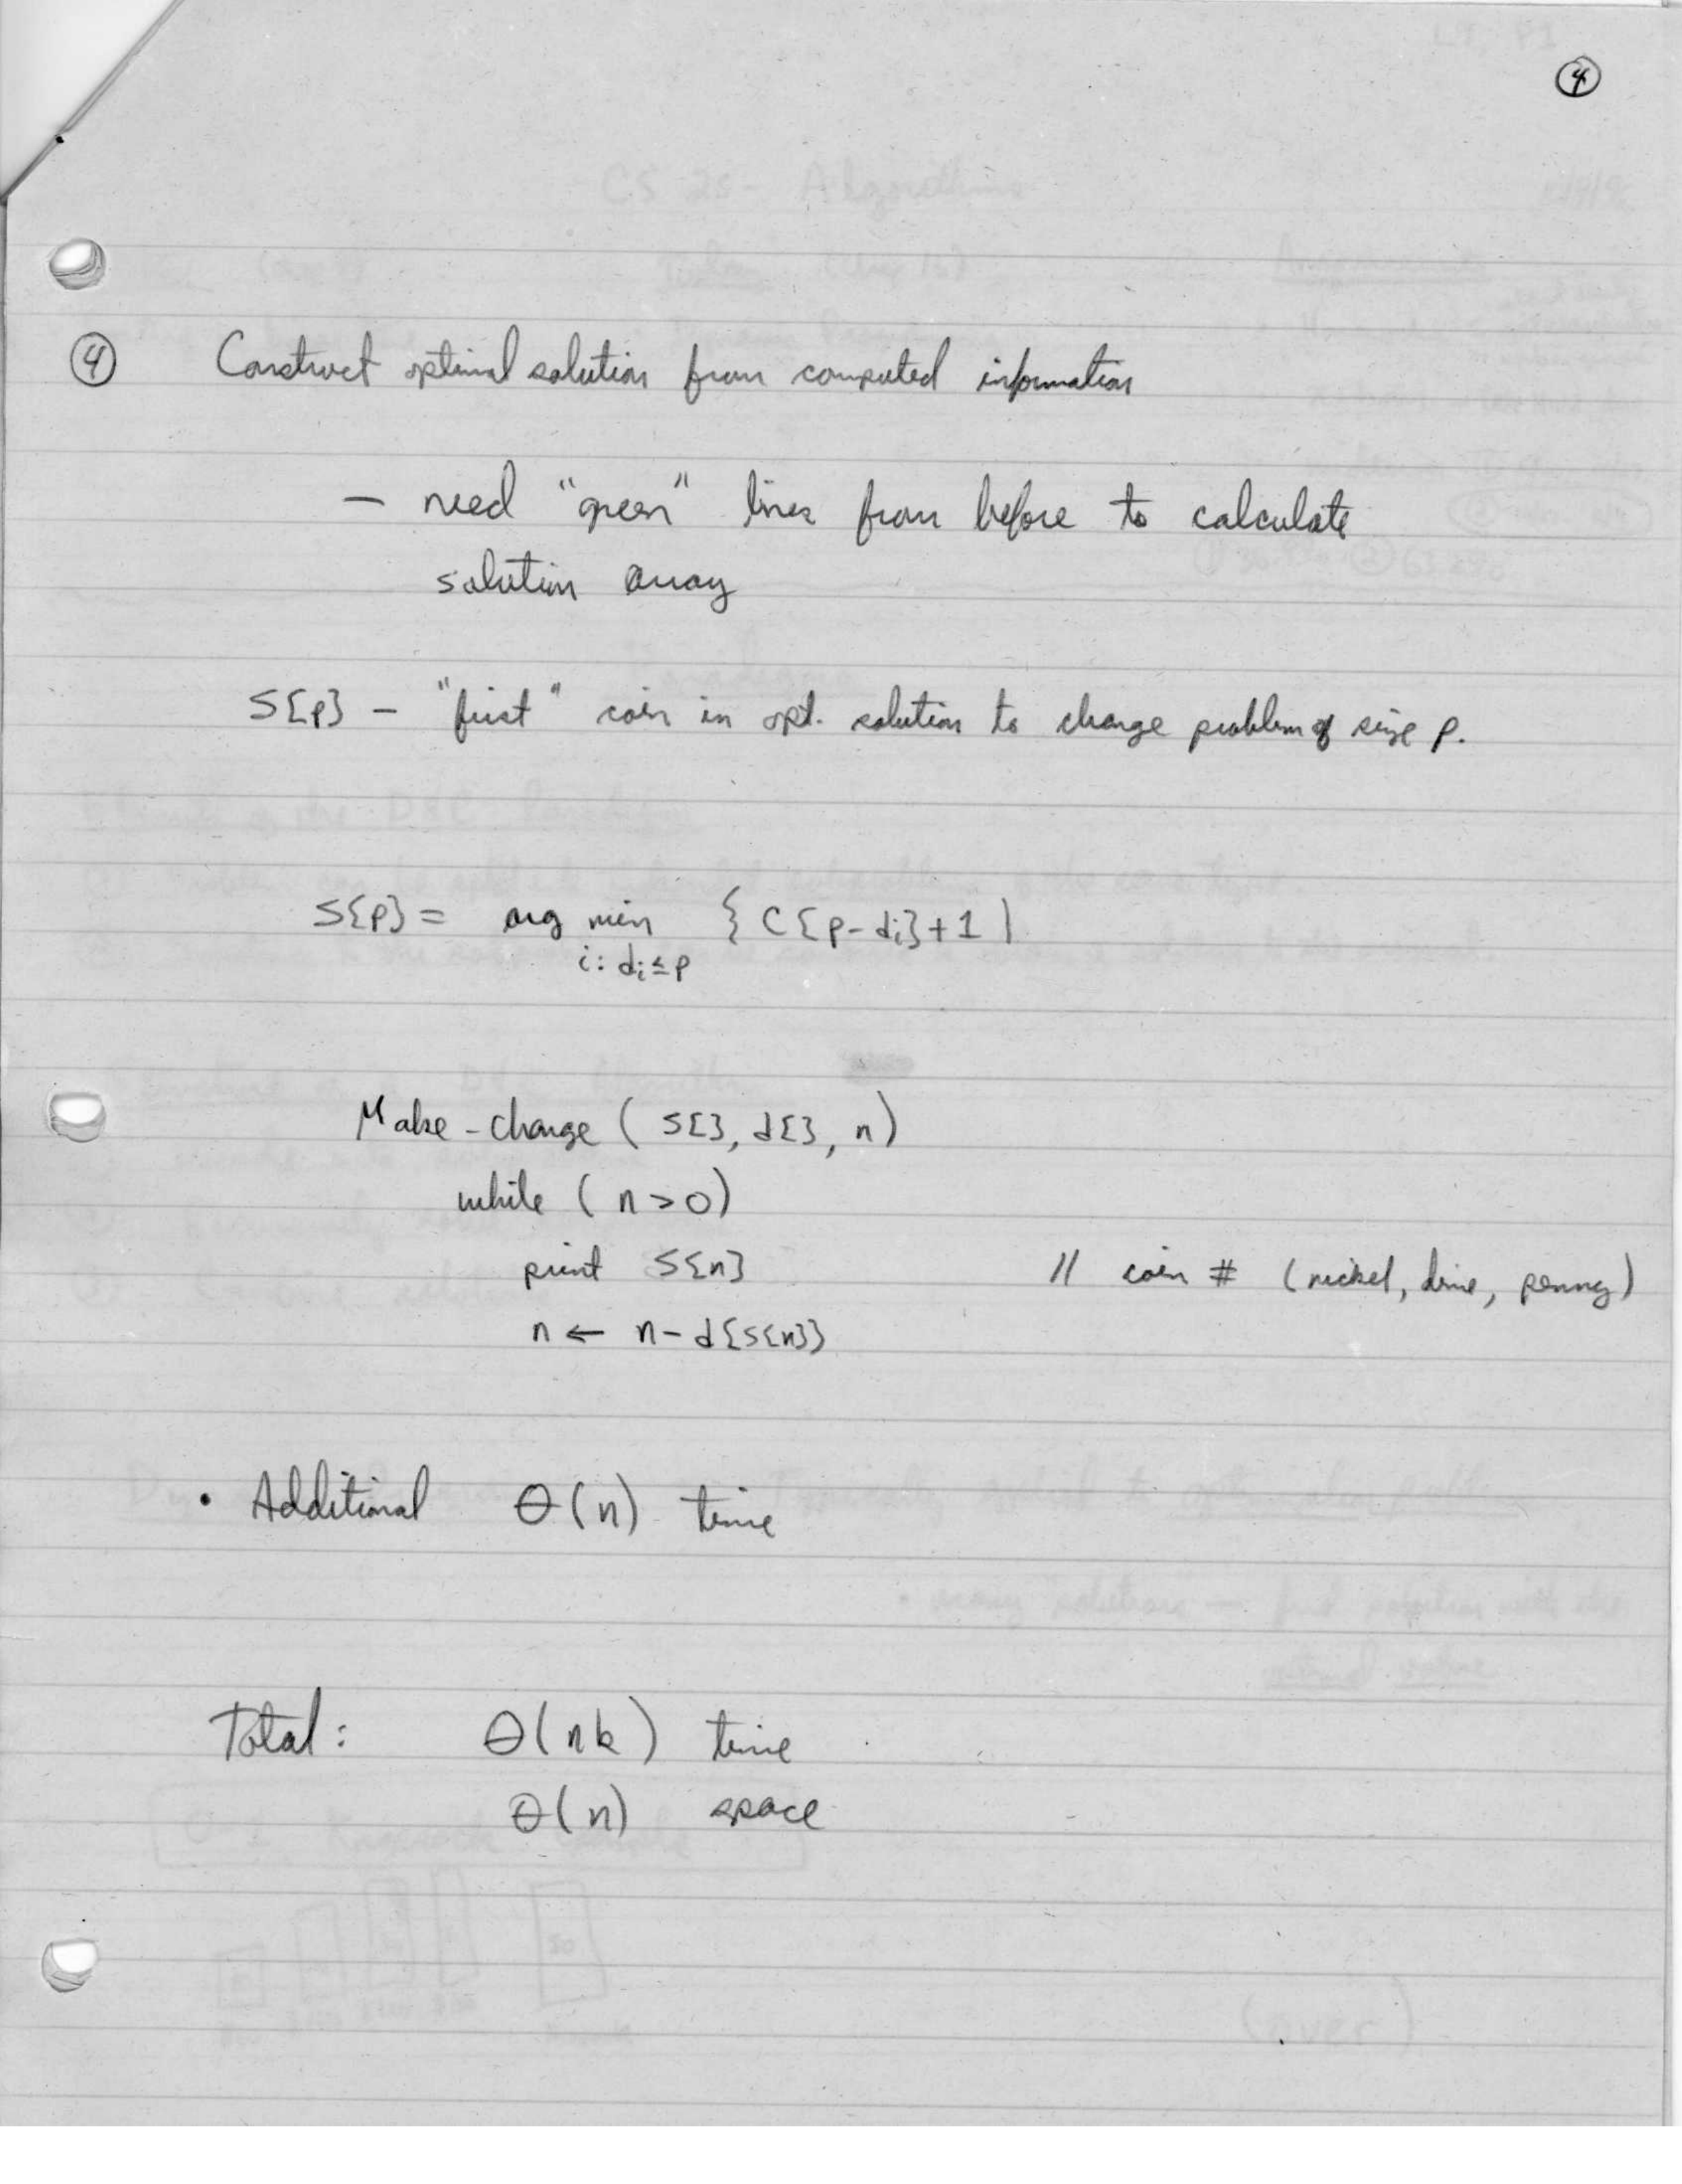 ④
④ Construct optimal solution from computed information
— need "green" lines from before to calculate
solution array
S[p] – "first" coin in opt. solution to change problem of size p.
S[p] = arg min { C[p-di]+1 }
i: di≤p
Make-change ( S[], d[], n)
while ( n>0)
print S[n] // coin # (nickel, dime, penny)
n ← n-d[S[n]]
• Additional Θ(n) time
Total: Θ(nk) time
Θ(n) space
CS 25 - Algorithms
(over)